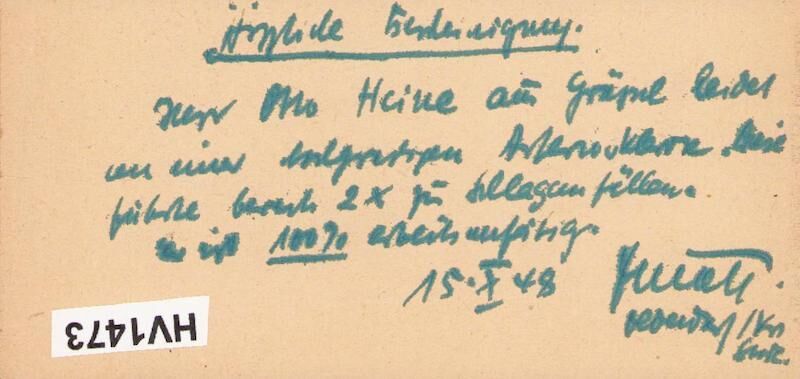 Ärztliche Bescheinigung.
Herr Otto Heine aus Gräpel leidet
an einer hochgradigen Arteriosklerose. Diese
führte bereits 2 x zu Schlaganfällen.
Er ist 100% arbeitsunfähig.
15. X 48
HV1473